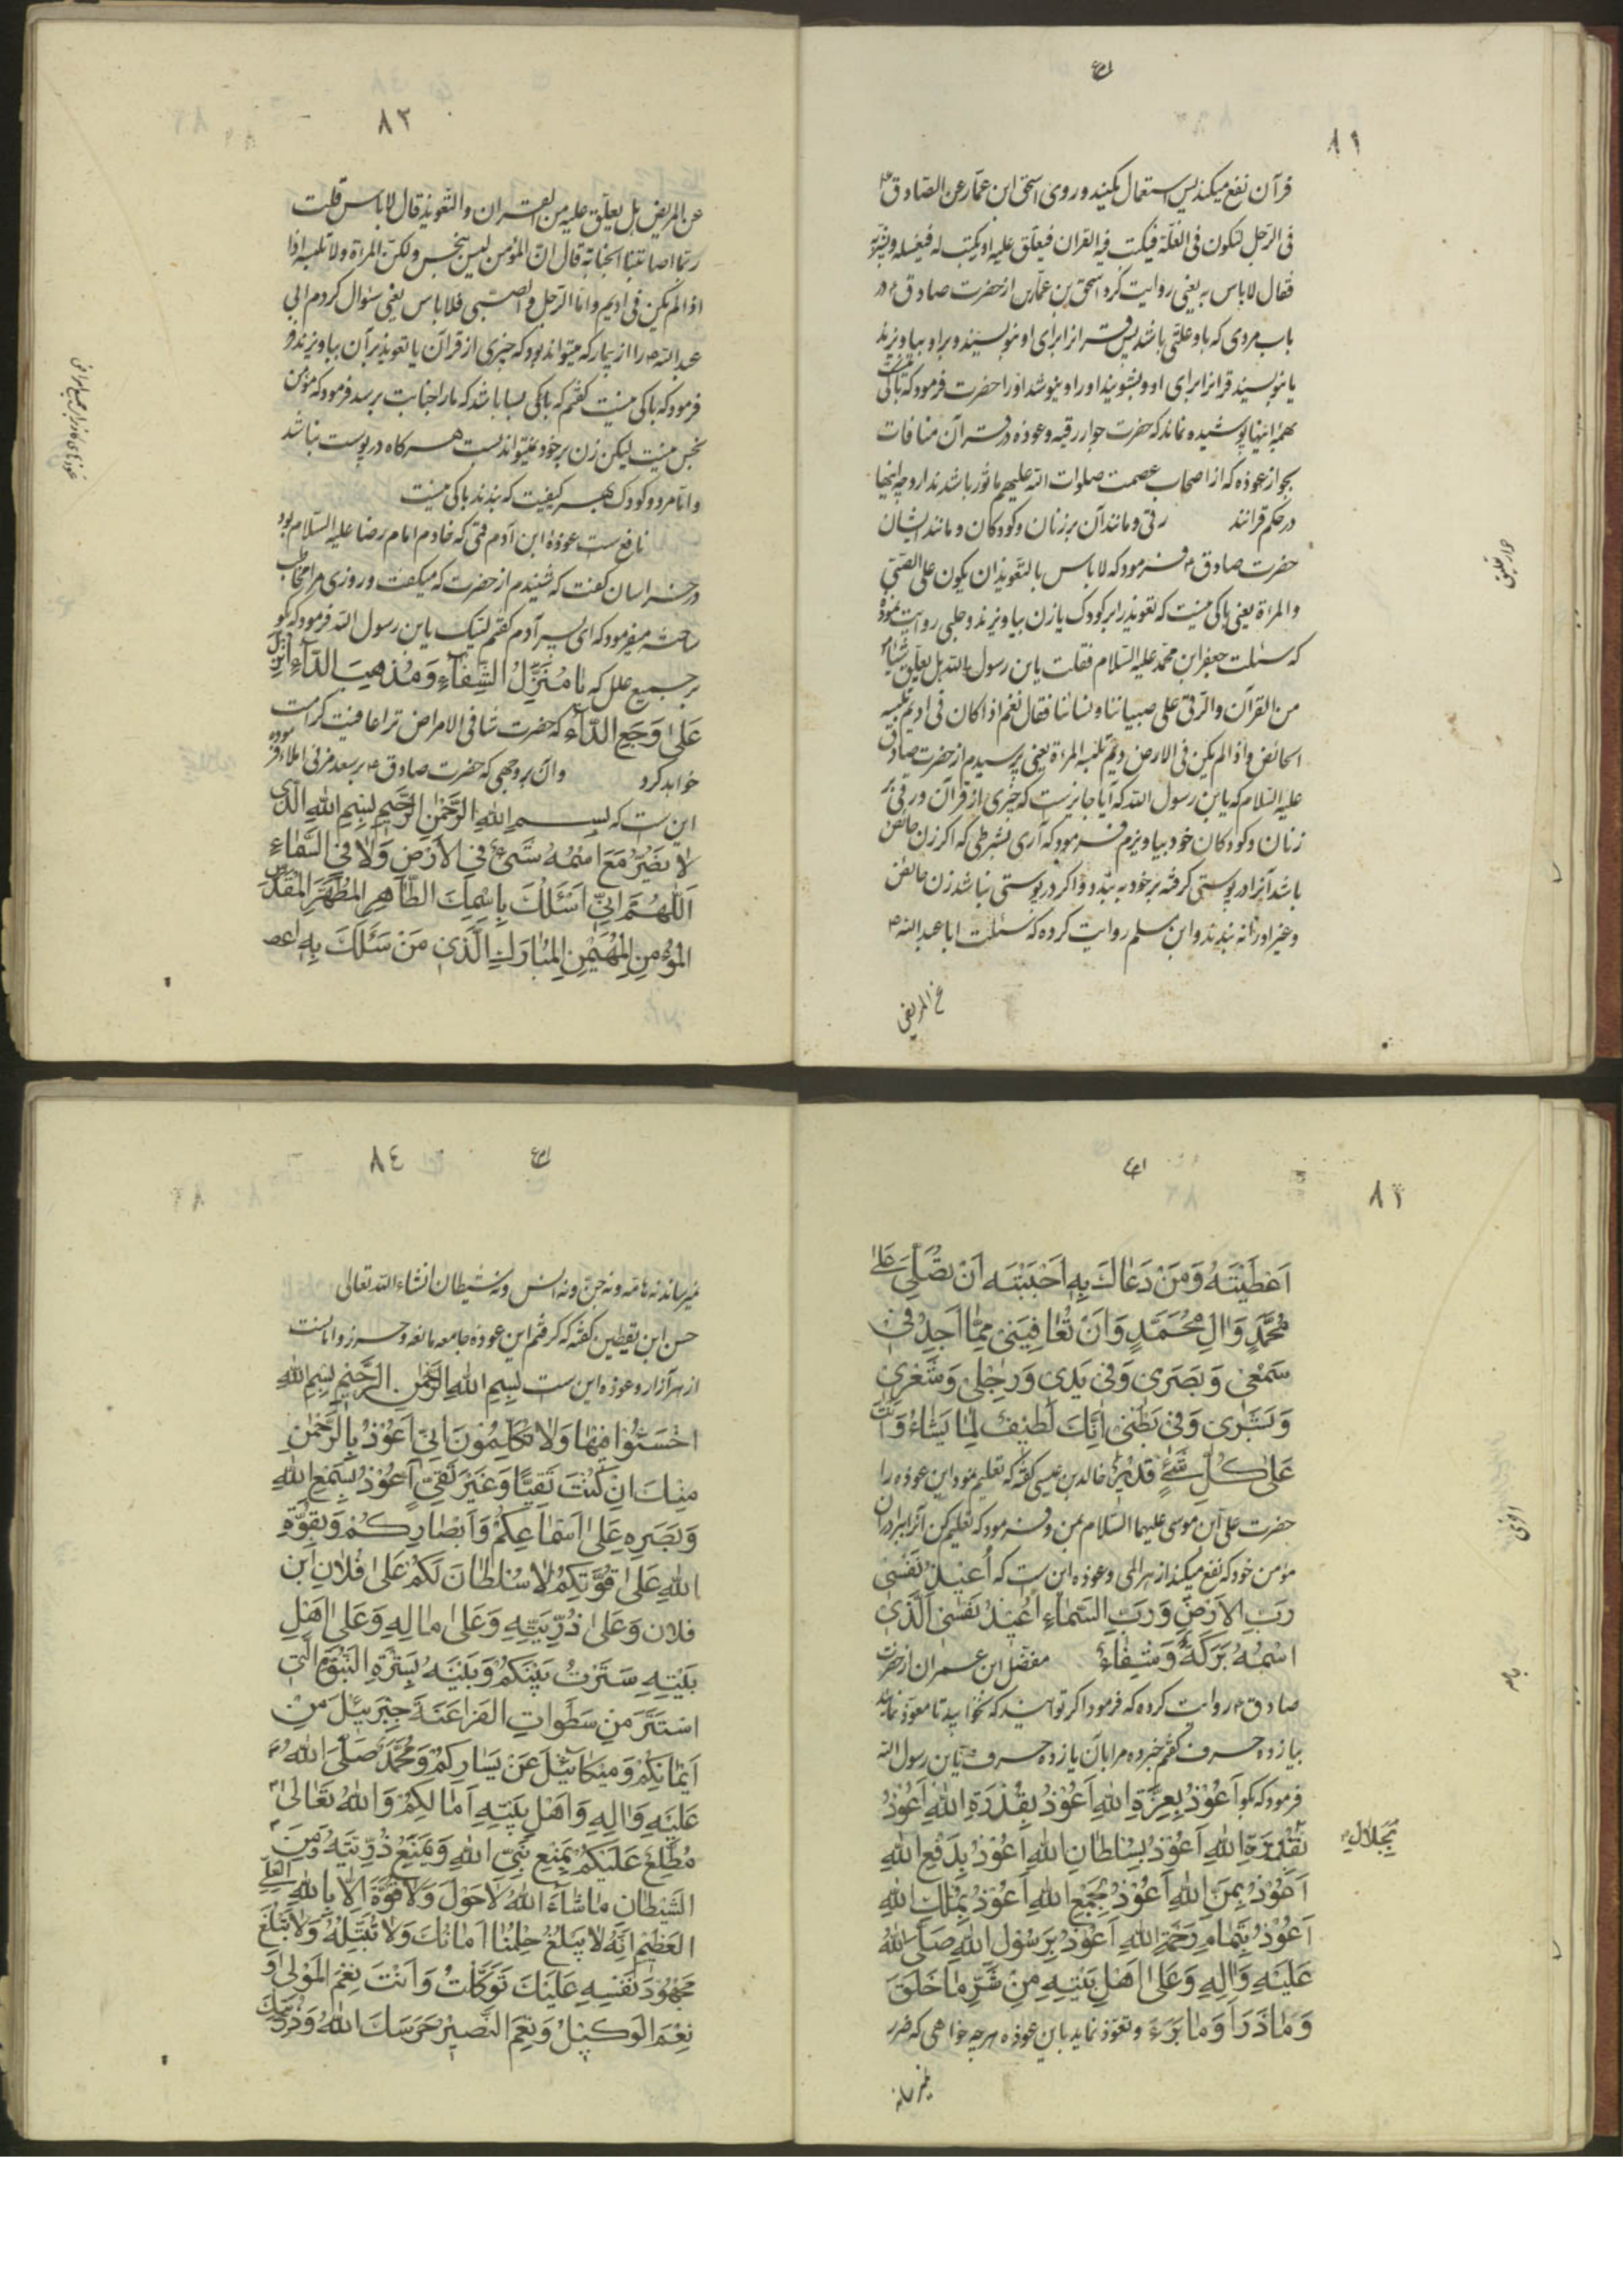 ٨١
قرآن نفع میکند پس استعمال بکنید و روی اسحق ابن عمّار عن الصّادق ع
فی الرّجل تکون فی العلّة فیکتب فیه القران فیعلّق علیه او یکتب له فیغسله و یشربه
فقال لا باس به یعنی روایت کرد اسحق بن عمّار از حضرت صادق ع در
باب مردی که باو علّتی باشد پس قرانرا برای او بنویسند و بر او بیاویزند
یا بنویسند قرانرا برای او و بشویند او را و بنوشد او را حضرت فرمود که باکی نیست
بهمهٔ اینها پوشیده نماند که حضرت جواز رقیه و عوذه در قرآن منافات
بجواز عوذه که از اصحاب عصمت صلوات الله علیهم ماثور باشد ندارد چه اینها
در حکم قرانند رقی و مانند آن بر زنان و کودکان و مانند ایشان
حضرت صادق ع فرمود که لا باس بالتّعویذ ان یکون علی الصّبی
والمراة یعنی باکی نیست که تعویذ را بر کودک یا زن بیاویزند و حلبی روایت نموده
که سئلت جعفر ابن محمّد علیه السّلام فقلت یابن رسول الله هل یعلّق شیئا
من القرآن والرّقی علی صبیاننا و نسائنا فقال نعم اذا کان فی ادیم تلبسه
الحائض و اذا لم یکن فی الادیم لم تلبسه المراة یعنی پرسیدم از حضرت صادق
علیه السّلام که یابن رسول الله که آیا جایز ست که چیزی از قرآن و رقی بر
زنان و کودکان خود بیاویزم فرمود که آری بشرطی که اکر زن حائض
باشد آنرا در پوستی کرفته بر خود به بندد و اکر در پوستی نباشد زن حائض
و غیر او نه بندند و ابن مسلم روایت کرده که سئلت ابا عبد الله ع
عن المریض
جواز تعلیق
٨٢
عن المریض هل یعلّق علیه من القران والتّعویذ قال لا باس قلت
ربّما اصابتنا الجنابة قال انّ المؤمن لیس بنجس ولکنّ المراة لا تلبسه اذا
اذا لم یکن فی ادیم و امّا الرّجل والصّبی فلا باس یعنی سئوال کردم ابی
عبد الله ع را از بیمار که میتواند بود که چیزی از قرآن یا تعویذ بر آن بیاویزند
فرمود که باکی نیست کفتم که بسا باشد که ما را جنابت برسد فرمود که مؤمن
نجس نیست لیکن زن بر خود نمیتواند بست هرکاه در پوست نباشد
و امّا مرد و کودک بهر کیفیت که بندند باکی نیست
نافع ست عوذهٔ ابن آدم فتی که خادم امام رضا علیه السّلام بود
در خراسان کفت که شنیدم از حضرت که میکفت و روزی مرا مخاطب
ساخته میفرمود که ای پسر آدم کفتم لبّیک یابن رسول الله فرمود که بکو
بر جمیع علل که یٰا مُنَزِّلُ الشِّفٰاءِ وَ مُذْهِبَ الدّآءِ اَنْزِلْ
عَلیٰ وَجَعِ الدّآءِ که حضرت شافی الامراض ترا عافیت کرامت
خواهد کرد و آن بروجهی که حضرت صادق ع بر سعد مزنی املاء فرموده
این ست که بِسْمِ اللهِ الرَّحْمٰنِ الرَّحیمِ بِسْمِ اللهِ الَّذی
لاٰ یَضُرُّ مَعَ اسْمِهِ شَیْءٌ فِی الْاَرْضِ وَلاٰ فِی السَّمٰاءِ
اَللّٰهُمَّ اِنّی اَسْئَلُكَ بِاسْمِكَ الطّٰاهِرِ الْمُطَهَّرِ الْمُقَدَّسِ
المُؤْمِنِ الْمُهَیْمِنِ الْمُبٰارَكِ الَّذی مَنْ سَئَلَكَ بِهِ
٨٣
اَعْطَیْتَهُ وَ مَنْ دَعٰاكَ بِهِ اَجَبْتَهُ اَنْ تُصَلِّیَ عَلیٰ
مُحَمَّدٍ وَ اٰلِ مُحَمَّدٍ وَ اَنْ تُعٰافِیَنی مِمّٰا اَجِدُ فی
سَمْعی وَ بَصَری وَ فی یَدی وَ رِجْلی وَ شَعْری
وَ بَشَری وَ فی بَطْنی اِنَّكَ لَطیفٌ لِمٰا یَشٰاءُ وَ اَنْتَ
عَلیٰ كُلِّ شَیْءٍ قَدیرٌ خالد بن عیسی کفته که تعلیم نمود این عوذه را
حضرت علی ابن موسی علیهما السّلام بمن و فرمود که تعلیم کن آنرا ببرادران
مؤمن خود که نفع میکند از هر المی و عوذه این ست که اُعیذُ نَفْسی
رَبِّ الْاَرْضِ وَ رَبِّ السَّمٰاءِ اُعیذُ نَفْسی الَّذی
اسْمُهُ بَرَكَةٌ وَ شِفٰاءٌ مفضّل ابن عمران از حضرت
صادق ع روایت کرده که فرمود اکر توانید که نخوابید تا معوّذ نمائید
بیازده حرف کفتم خبر ده مرا بآن یازده حرف یابن رسول الله
فرمود که بکو اَعُوْذُ بِعِزَّةِ اللهِ اَعُوْذُ بِقُدْرَةِ اللهِ اَعُوْذُ
بِقُدْرَةِ اللهِ اَعُوْذُ بِسُلْطٰانِ اللهِ اَعُوْذُ بِدَفْعِ اللهِ
اَعُوْذُ بِمَنِّ اللهِ اَعُوْذُ بِجَمْعِ اللهِ اَعُوْذُ بِمُلْكِ اللهِ
اَعُوْذُ بِتَمٰامِ رَحْمَةِ اللهِ اَعُوْذُ بِرَسُوْلِ اللهِ صَلَّی اللهُ
عَلَیْهِ وَ اٰلِهِ وَ عَلیٰ اَهْلِ بَیْتِهِ مِنْ شَرِّ مٰا خَلَقَ
وَ مٰا ذَرَأَ وَ مٰا بَرَءَ و تعوّذ نماید باین عوذه هر چه خواهی که ضرر
بِجَلاٰلِ
٨٤
نمیرساند نه هامه و نه جنّ و نه انس و نه شیطان انشاء الله تعالی
حسن ابن یقطین کفته که کرفتم این عوذه جامعه مانعه و حرز و امانست
از هر آزار و عوذه این ست بِسْمِ اللهِ الرَّحْمٰنِ الرَّحیمِ بِسْمِ اللهِ
اخْسَئُوْا فیهٰا وَلاٰ تُكَلِّمُونَ اِنّی اَعُوْذُ بِالرَّحْمٰنِ
مِنْكَ اِنْ كُنْتَ تَقِیًّا وَ غَیْرَ تَقِیٍّ اَعُوْذُ بِسَمْعِ اللهِ
وَ بَصَرِهِ عَلیٰ اَسْمٰاعِكُمْ وَ اَبْصٰارِكُمْ وَ بِقُوَّةِ
اللهِ عَلیٰ قُوَّتِكُمْ لاٰ سُلْطٰانَ لَكُمْ عَلیٰ فُلاٰنِ ابْنِ
فلان وَ عَلیٰ ذُرِّیَّتِهِ وَ عَلیٰ مٰالِهِ وَ عَلیٰ اَهْلِ
بَیْتِهِ سَتَرْتُ بَیْنَكُمْ وَ بَیْنَهُ بِسَتْرَةِ النُّبُوَّةِ الَّتی
اسْتَتَرَ مِنْ سَطَوٰاتِ الْفَرٰاعَنَةِ جَبْرَئیلَ مِنْ
اَیْمٰانِكُمْ وَ میكٰائیلَ عَنْ یَسٰارِكُمْ وَ مُحَمَّدَ صَلَّی اللهُ
عَلَیْهِ وَ اٰلِهِ وَ اَهْلِ بَیْتِهِ اَمٰامَكُمْ وَ اللهُ تَعٰالیٰ
مُطَّلِعٌ عَلَیْكُمْ بِمَنْعِ نَبِیِّ اللهِ وَ بِمَنْعِ ذُرِّیَّتِهِ وَ مِنَ
الشَّیْطٰانِ مٰا شٰاءَ اللهُ لاٰ حَوْلَ وَلاٰ قُوَّةَ اِلاّٰ بِاللهِ الْعَلِیِّ
الْعَظیمِ اِنَّهُ لاٰ یَبْلُغُ حِلْمُنٰا اَمٰانَكَ وَلاٰ وَلاٰ یَبْلُغُ
مَجْهُوْدَ نَفْسِهِ عَلَیْكَ تَوَكَّلْتُ وَ اَنْتَ نِعْمَ الْمَوْلیٰ وَ
نِعْمَ الْوَكیلُ وَ نِعْمَ النَّصیرُ حَرَسَكَ اللهُ وَ ذُرِّیَّتَكَ